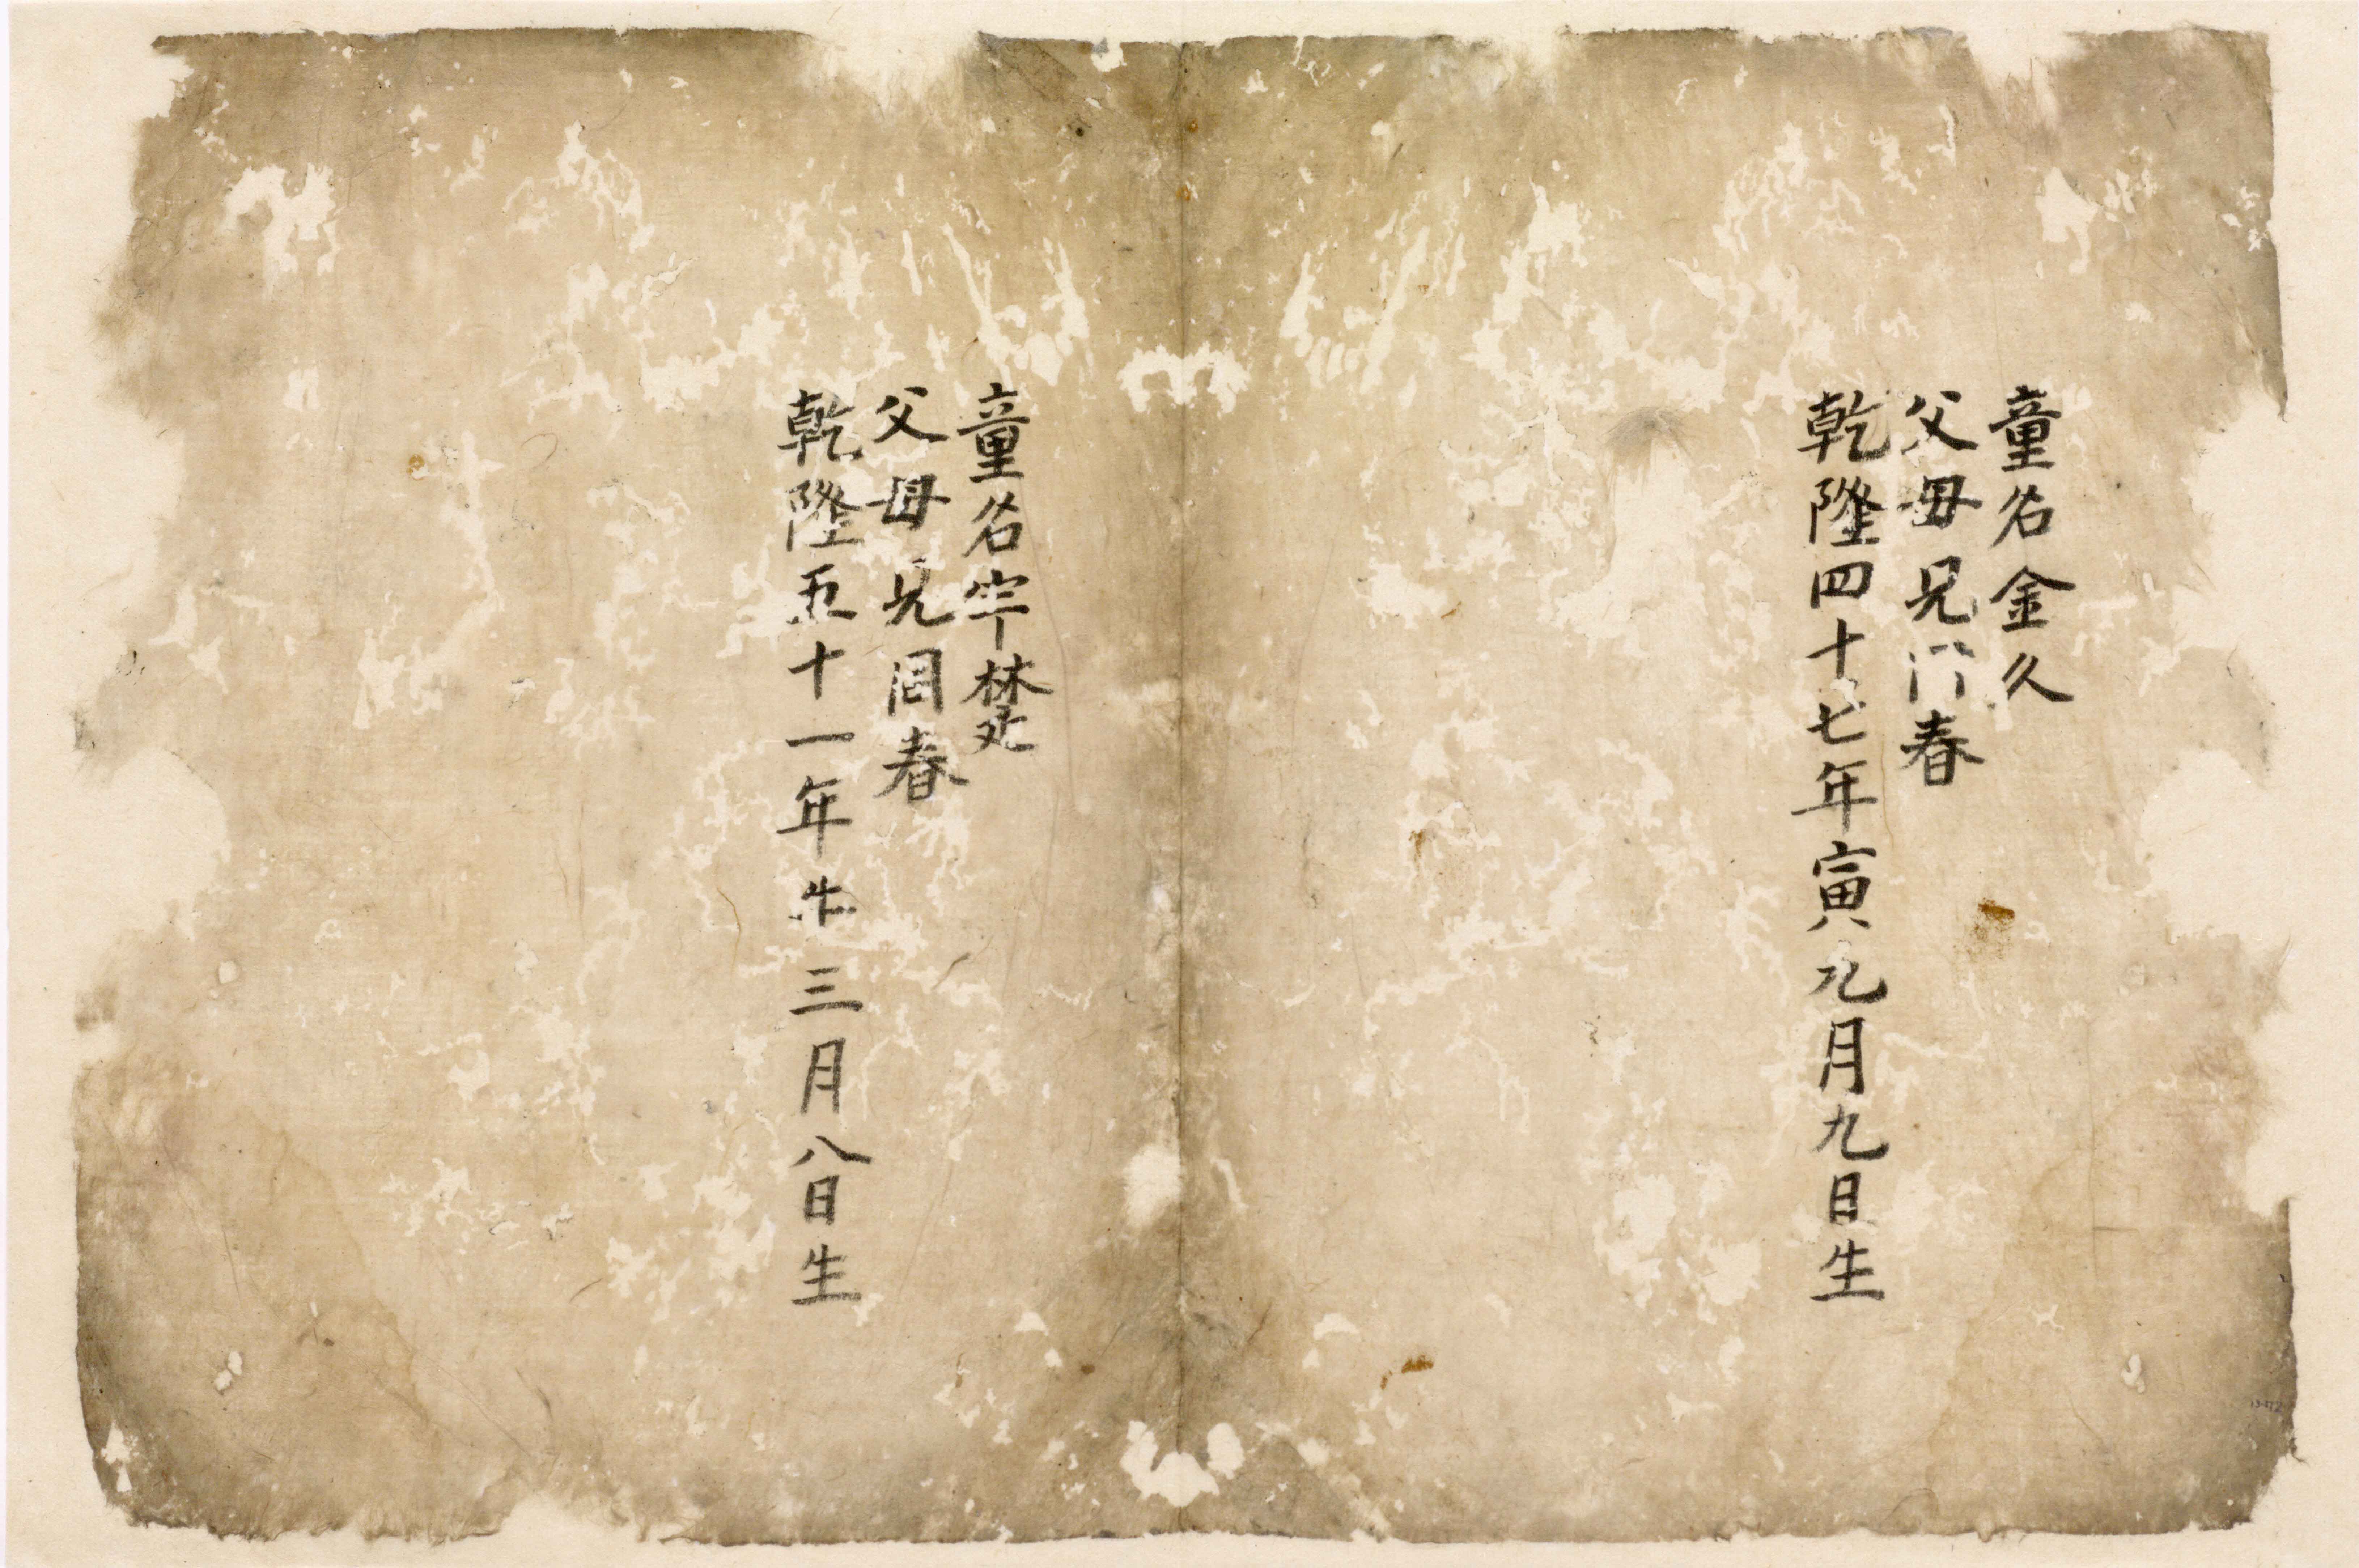 童名金久
父母兄 春
乾隆四十七年寅九月九日生
童名宇楚
父母兄同春
乾隆五十一年 三月八日生